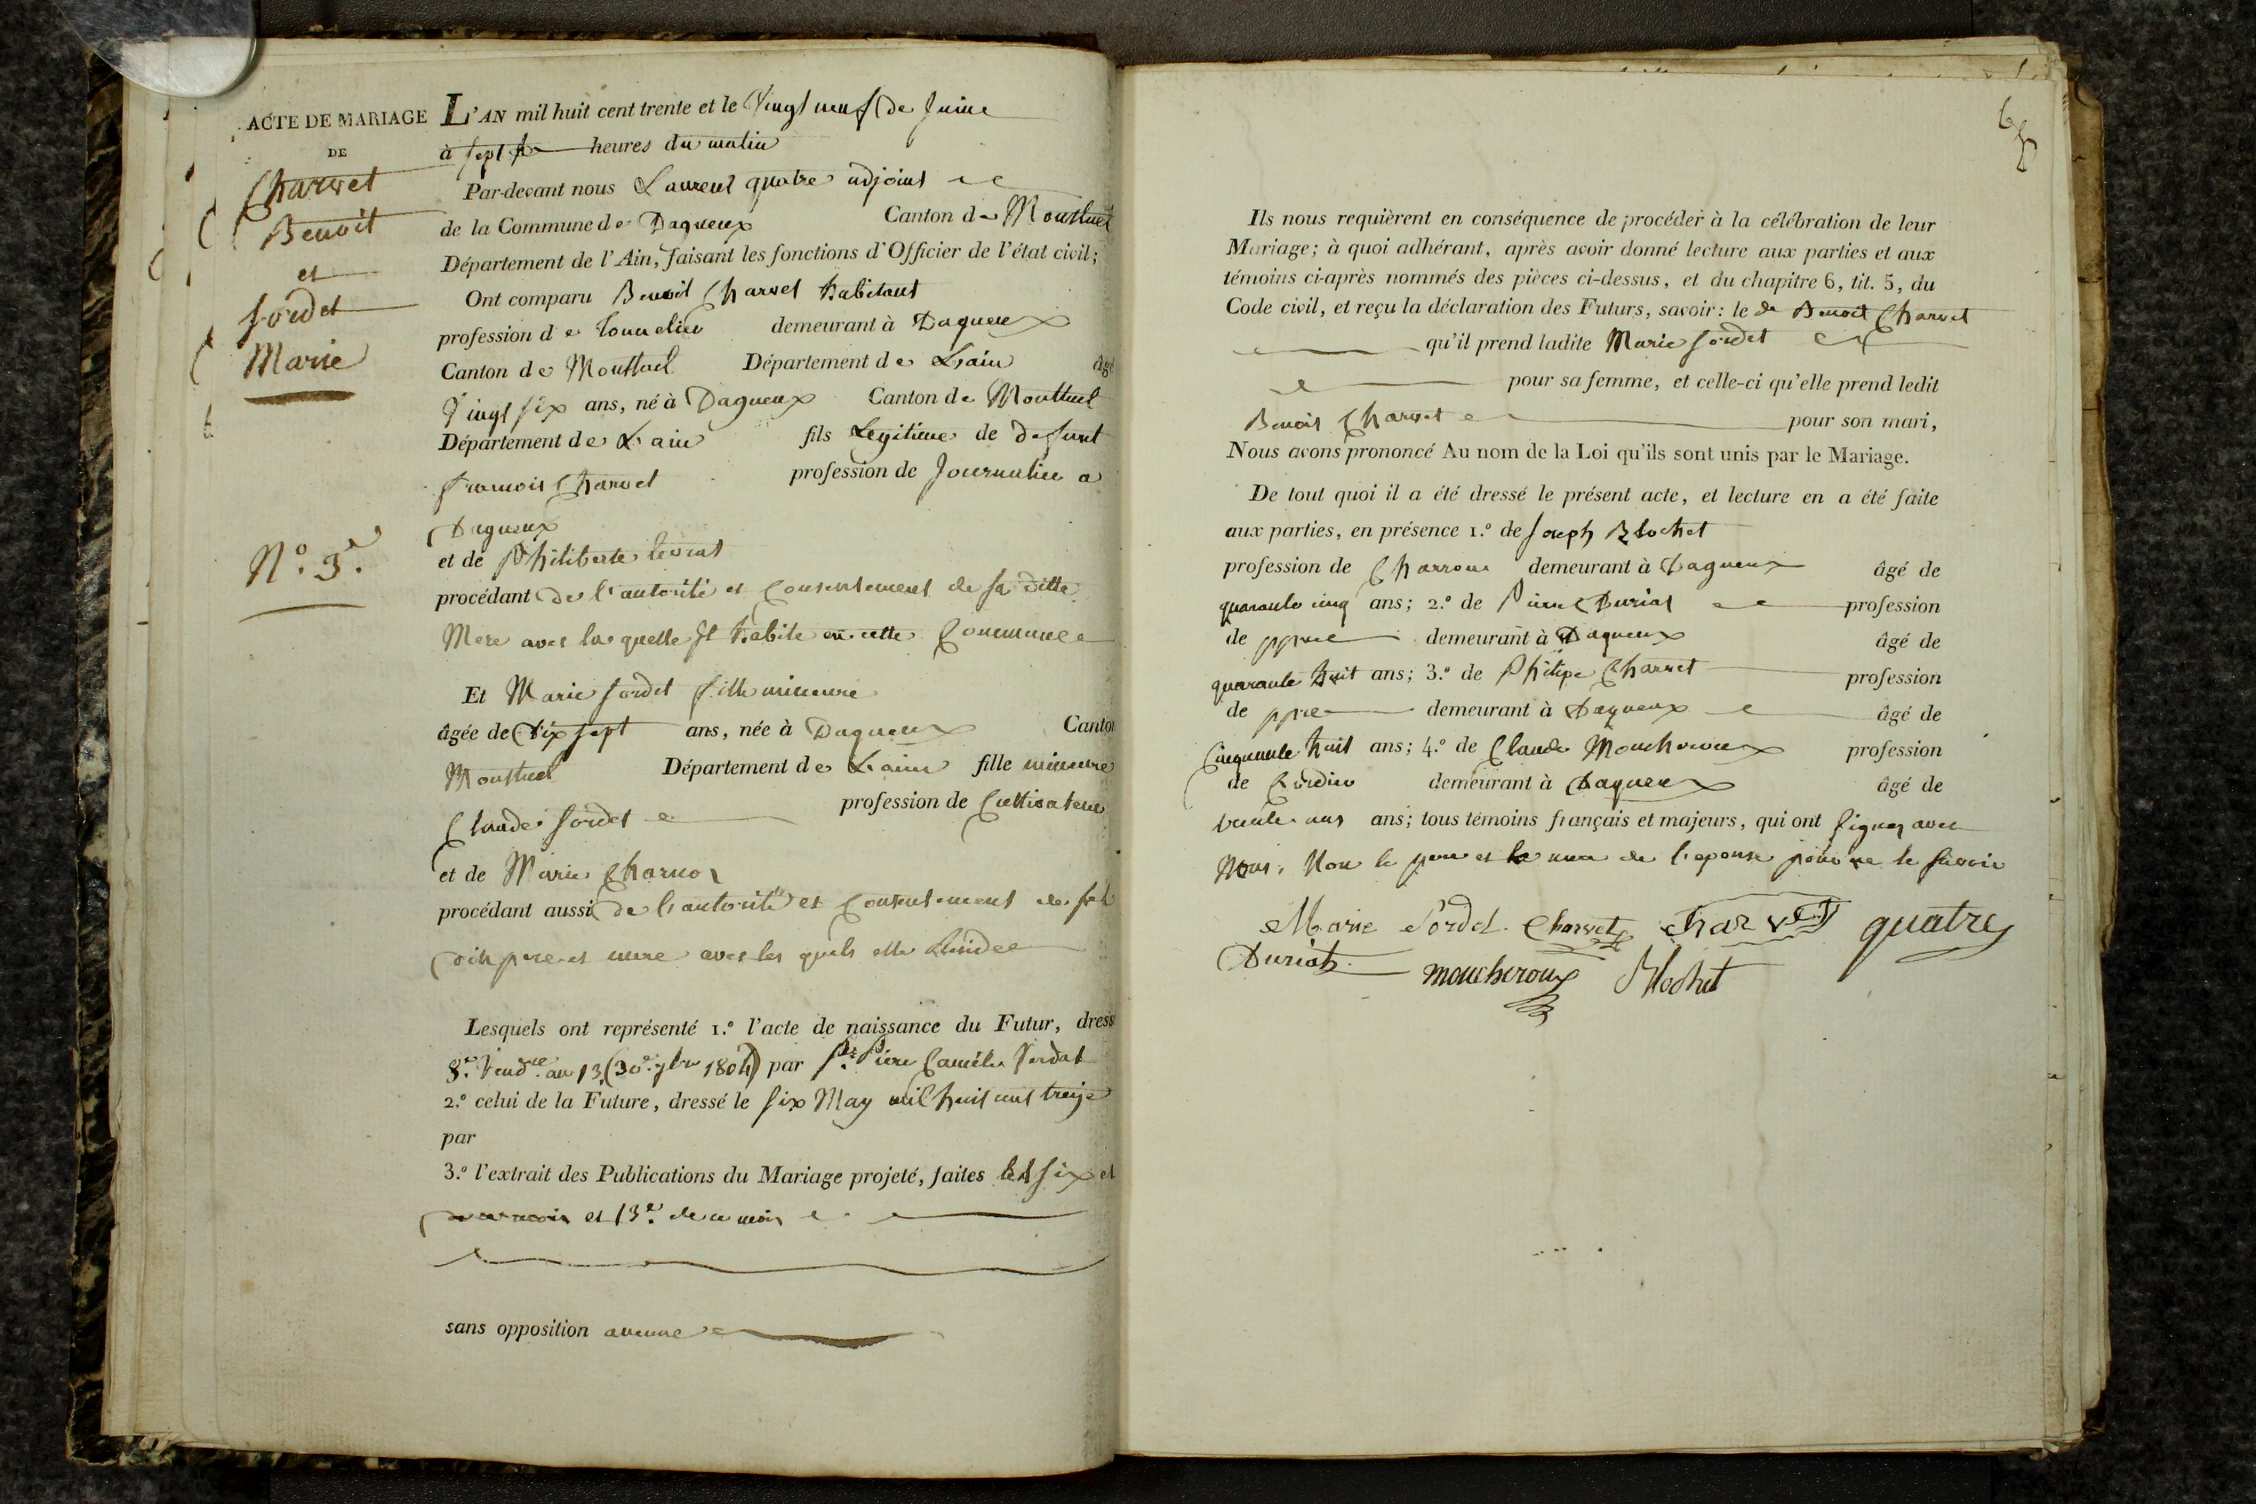 ACTE DE MARIAGE
DE
Charvet
Benoit
et
Sordet
Marie
N.º 3.e
L'AN mil huit cent trente et le Vingt neuf de Juin
à sept heures du matin
Par-devant nous Laurent quatre adjoint
de la Commune de Dagneux Canton de Montluel
Département de l'Ain, faisant les fonctions d'Officier de l'état civil;
Ont comparu Benoit Charvet habitant
profession de tonnelier demeurant à Dagneux
Canton de Montluel Département de Lain âgé
Vingt six ans, né à Dagneux Canton de Montluel
Département de Lain fils Legitime de defunt
francois Charvet profession de Journalier a
Dagneux
et de Philiberte
procédant de l'autorité et Consentement de sa ditte
Mere avec la quelle Il habite en cette Commune
Et Marie Sordet fille mineure
âgée de Dix sept ans, née à Dagneux Canton
Montluel Département de Lain fille mineure
Claude Sordet profession de Cultivateur
et de Marie
procédant aussi de l'autorité et Consentement de ses
dits pere et mere avec les quels elle Reside
Lesquels ont représenté 1.º l'acte de naissance du Futur, dress
8.e Vend.re an 13 (30.e 7bre 1804) par
2.º celui de la Future, dressé le six May mil huit cent treize
par
3.º l'extrait des Publications du Mariage projeté, faites les six et
et 13.e de ce mois
sans opposition aucune
Ils nous requièrent en conséquence de procéder à la célébration de leur
Mariage; à quoi adhérant, après avoir donné lecture aux parties et aux
témoins ci-après nommés des pièces ci-dessus, et du chapitre 6, tit. 5, du
Code civil, et reçu la déclaration des Futurs, savoir: le dt Benoit Charvet
qu'il prend ladite Marie Sordet
pour sa femme, et celle-ci qu'elle prend ledit
Benoit Charvet pour son mari,
Nous avons prononcé Au nom de la Loi qu'ils sont unis par le Mariage.
De tout quoi il a été dressé le présent acte, et lecture en a été faite
aux parties, en présence 1.º de Joseph Blochet
profession de Charron demeurant à Dagneux âgé de
quarante cinq ans; 2.º de Pierre Duriat profession
de ppre demeurant à Dagneux âgé de
quarante huit ans; 3.º de Philipe Charvet profession
de ppre demeurant à Dagneux âgé de
Cinquante huit ans; 4.º de Claude Moucheroux profession
de demeurant à Dagneux âgé de
trente ans; tous témoins français et majeurs, qui ont signez avec
Nous. Non le pere et la mere de l'epouse pour ne le savoir
Marie Sordet Charvet Charvet quatre
Duriat moucheroux Blochet